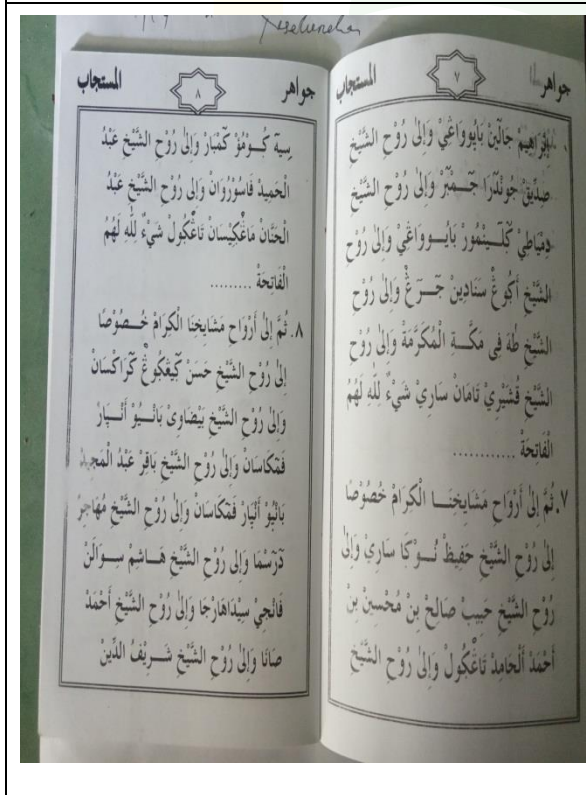 جواهر ٧ المستجاب
إِبْرَاهِيمْ جَالِيْنْ بَايُووَاڠِيْ وَإِلىٰ رُوْحِ الشَّيْخِ
صِدِّيْقْ جُوْنْدُرَا جَـــمْبَرْ وَإِلىٰ رُوْحِ الشَّيْخِ
دِمْيَاطِي كَلَـــيْنْمُوْرْ بَايُـــووَاڠِيْ وَإِلىٰ رُوْحِ
الشَّيْخِ أَكُوڠْ سَنَادِيْنْ جَـــرَڠْ وَإِلىٰ رُوْحِ
الشَّيْخِ طٰهٰ فِى مَكَّـــةِ الْمُكَرَّمَةْ وَإِلىٰ رُوْحِ
الشَّيْخِ قُشَيْرِيْ تَامَانْ سَارِيْ شَيْءٌ لِلّٰهِ لَهُمُ
الْفَاتِحَةْ ............
٧. ثُمَّ إِلىٰ أَرْوَاحِ مَشَايِخِنَـــا الْكِرَامْ خُصُوْصًا
إِلىٰ رُوْحِ الشَّيْخِ حَفِيظْ نُـــوْكَا سَارِيْ وَإِلىٰ
رُوْحِ الشَّيْخِ حَبِيبْ صَالِحْ بِنْ مُحْسِيْنْ بِنْ
أَحْمَدْ أَلْحَامِدْ تَاڠْكُولْ وَإِلىٰ رُوْحِ الشَّيْخِ
جواهر ٨ المستجاب
سِيَهْ كُـــوْمُوْ كَمْبَارْ وَإِلىٰ رُوْحِ الشَّيْخِ عَبْدُ
الْحَمِيدْ فَاسُوْرُوَانْ وَإِلىٰ رُوْحِ الشَّيْخِ عَبْدُ
الْحَنَّانْ مَاڠْكِيْسَانْ تَاڠْكُولْ شَيْءٌ لِلّٰهِ لَهُمُ
الْفَاتِحَةْ .........
٨. ثُمَّ إِلىٰ أَرْوَاحِ مَشَايِخِنَا الْكِرَامْ خُـــصُوْصًا
إِلىٰ رُوْحِ الشَّيْخِ حَسَنْ كَرَاكْسَانْ
وَإِلىٰ رُوْحِ الشَّيْخِ بَيْضَاوِىْ بَانْـــيُوْ أَنْـــيَارْ
فَمَكَاسَانْ وَإِلىٰ رُوْحِ الشَّيْخِ بَاقِرْ عَبْدُ الْمَجِيدْ
بَانْيُوْ أَنْيَارْ فَمَكَاسَانْ وَإِلىٰ رُوْحِ الشَّيْخِ مُهَاجِرْ
دَرَسْمَا وَإِلىٰ رُوْحِ الشَّيْخِ هَـــاشِمْ سِـــوَالَنْ
فَانْجِيْ سِيْدَاهَارْجَا وَإِلىٰ رُوْحِ الشَّيْخِ أَحْمَدْ
صَانَا وَإِلىٰ رُوْحِ الشَّيْخِ شَـــرِيْفُ الدِّيْنْ